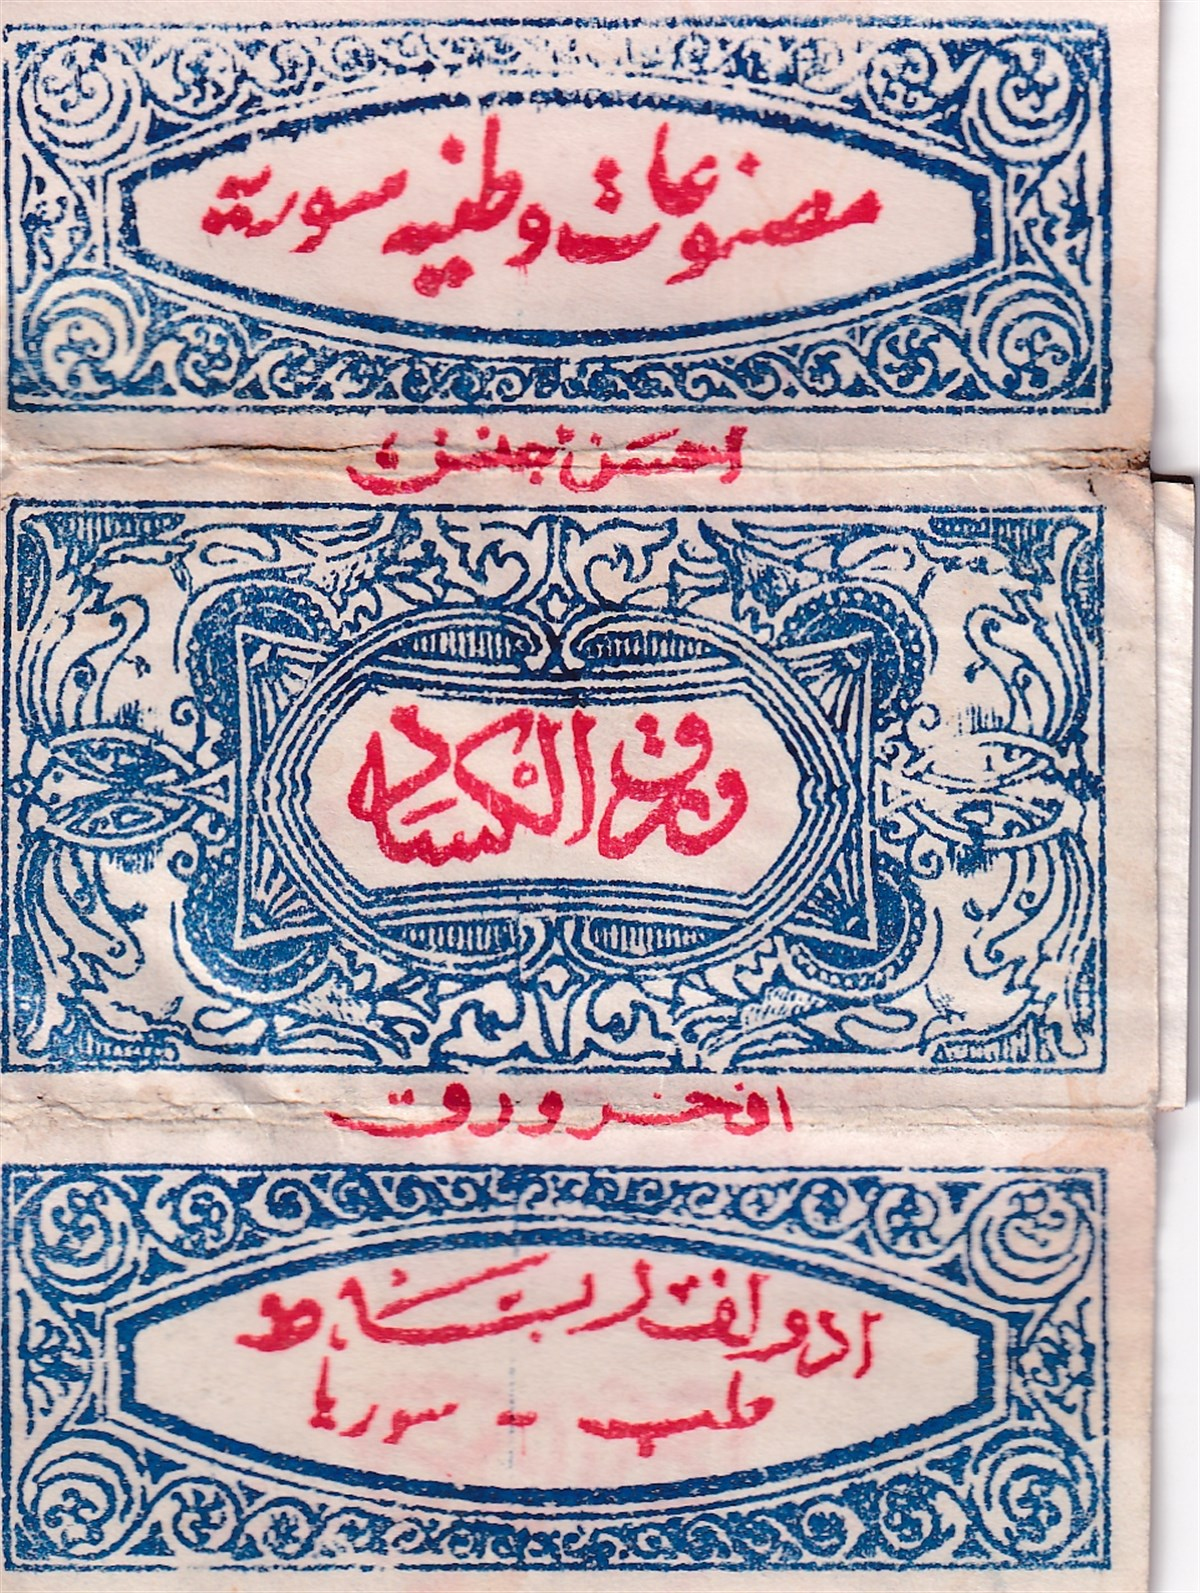 مصنوعات وطنيه سورية
احسن جنس
ورق الكساد
افخر ورق
ادولف
حلب - سوريا